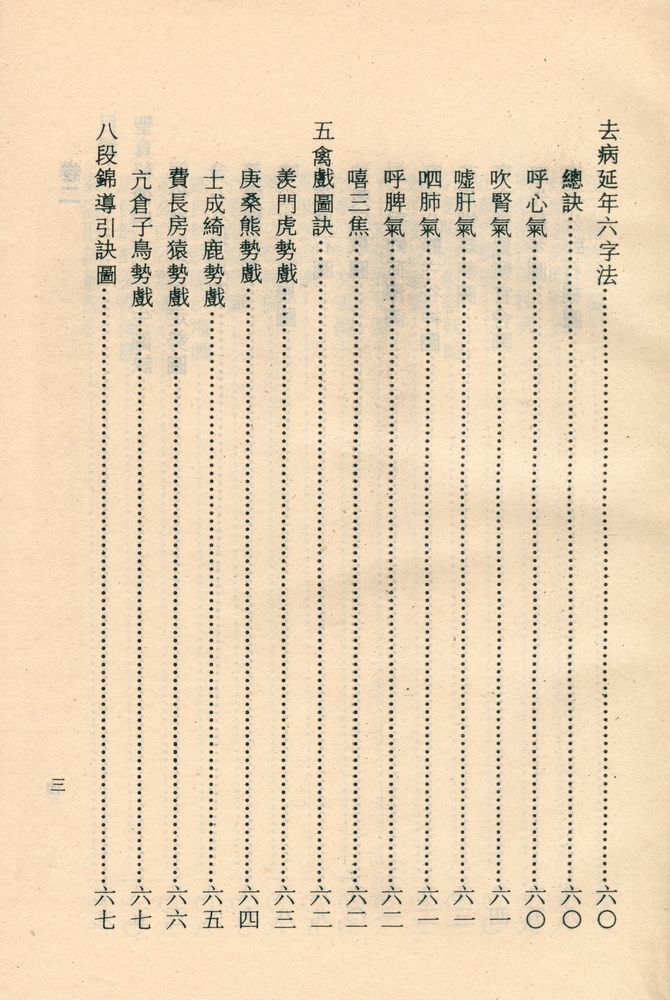 去病延年六字法⋯⋯六〇
總訣⋯⋯六〇
呼心氣⋯⋯六〇
吹腎氣⋯⋯六一
噓肝氣⋯⋯六一
呬肺氣⋯⋯六一
呼脾氣⋯⋯六二
嘻三焦⋯⋯六二
五禽戲圖訣⋯⋯六二
羨門虎勢戲⋯⋯六三
庚桑熊勢戲⋯⋯六四
士成綺鹿勢戲⋯⋯六五
費長房猿勢戲⋯⋯六六
亢倉子鳥勢戲⋯⋯六七
八段錦導引訣圖⋯⋯六七
三